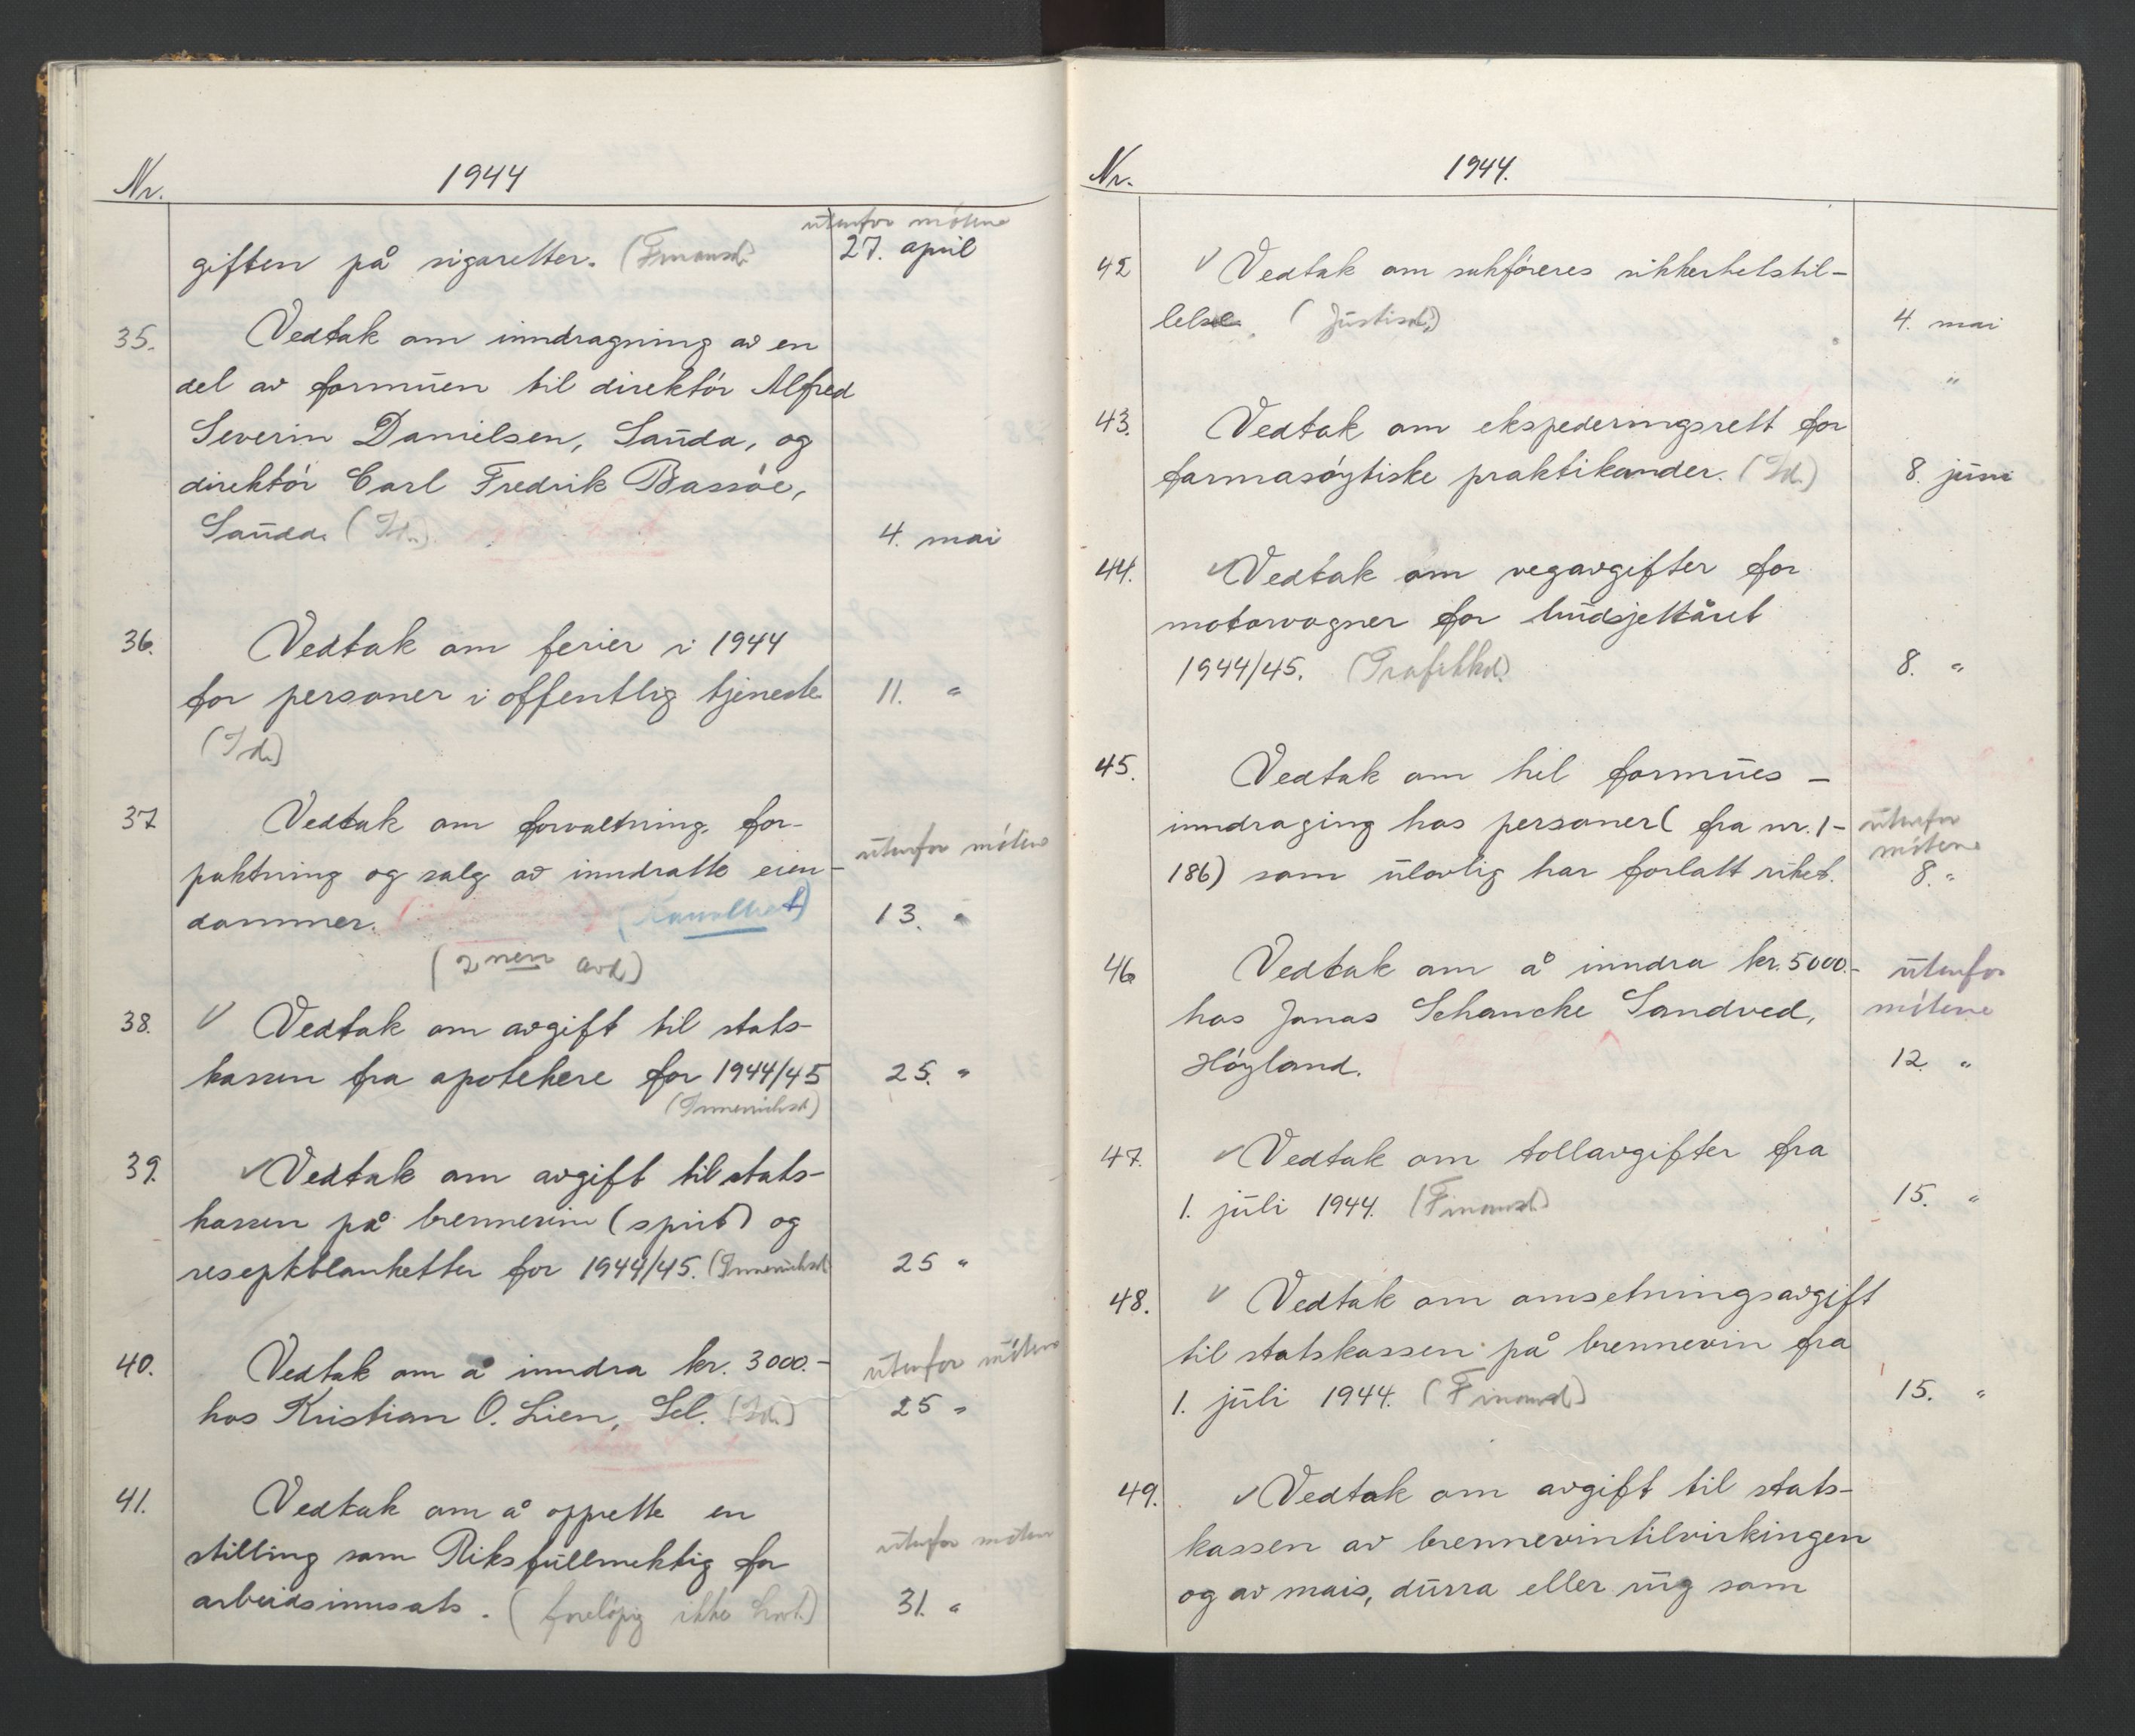 Nr.
1944
utenfor mötene
giften på sigaretter. (Finansd.
27. april
35.
Vedtak om inndragning av en
del av formuen til direktör Alfred
Severin Danielsen, Sauda, og
direktör Carl Fredrik Bassöe,
Sauda. (Id.)
4. mai
36.
Vedtak om ferier i 1944
for personer i offentlig tjeneste
11. "
(Id.)
37
Vedtak om forvaltning, for-
utenfor mötene
paktning og salg av inndratte eien-
dommer.
13. "
(2nen avd)
38.
V Vedtak om avgift til stats-
kassen fra apotekere for 1944/45
25. "
(Innenriksd)
39.
✓ Vedtak om avgift til stats-
kassen på brennevin (sprit) og
reseptblanketter for 1944/45. (Innenriksd.
25 "
40.
Vedtak om å inndra kr. 3000.-
utenfor mötene
hos Kristian O. Lien, Sel. (Id.)
25 "
41.
Vedtak om å opprette en
stilling som Riksfullmektig for
utenfor möten
arbeidsinnsats. (foreløpig ikke
31. "
Nr.
1944.
42
V Vedtak om sakföreres sikkerhetstil-
lelse. (Justisd.)
4. mai
"
43.
Vedtak om ekspederingsrett for
farmasöytiske praktikander. (Id.)
8. juni
44.
✓ Vedtak om vegavgifter for
motorvogner for budsjettåret
1944/45. (Trafikkd.)
8. "
45.
Vedtak om hel formues-
inndraging hos personer (fra nr. 1-
utenfor
mötene
186) som ulovlig har forlatt riket.
8. "
46
Vedtak om å inndra kr. 5000.-
utenfor
hos Jonas Schancke Sandved,
mötene
Höyland.
12. "
47.
✓ Vedtak om tollavgifter fra
1. juli 1944. (Finansd)
15. "
48.
V Vedtak om omsetningsavgift
til statskassen på brennevin fra
1. juli 1944. (Finansd)
15. "
49.
✓ Vedtak om avgift til stats-
kassen av brennevintilvirkingen
og av mais, durra eller rug som